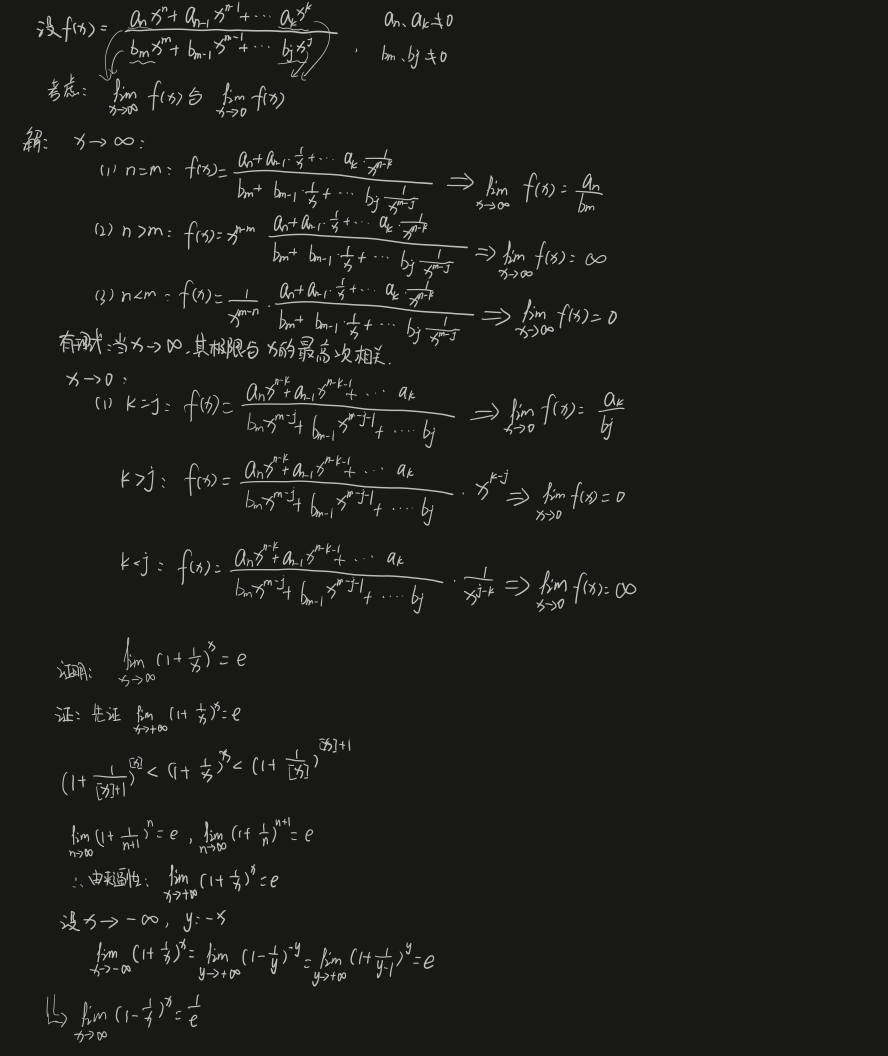 设f(x)= (aₙxⁿ+aₙ₋₁xⁿ⁻¹+⋯aₖxᵏ)/(bₘxᵐ+bₘ₋₁xᵐ⁻¹+⋯bⱼxʲ) , aₙ、aₖ≠0 bₘ、bⱼ≠0
考虑: lim_{x→∞} f(x) 与 lim_{x→0} f(x)
解: x→∞:
(1) n=m: f(x)= (aₙ+aₙ₋₁·1/x+⋯aₖ·1/x^{n-k})/(bₘ+bₘ₋₁·1/x+⋯bⱼ 1/x^{m-j}) ⇒ lim_{x→∞} f(x)= aₙ/bₘ
(2) n>m: f(x)=x^{n-m} (aₙ+aₙ₋₁·1/x+⋯aₖ·1/x^{n-k})/(bₘ+bₘ₋₁·1/x+⋯bⱼ 1/x^{m-j}) ⇒ lim_{x→∞} f(x)=∞
(3) n<m: f(x)= 1/x^{m-n} · (aₙ+aₙ₋₁·1/x+⋯aₖ·1/x^{n-k})/(bₘ+bₘ₋₁·1/x+⋯bⱼ 1/x^{m-j}) ⇒ lim_{x→∞} f(x)=0
当x→∞,其极限与x的最高次相关.
x→0:
(1) k=j: f(x)= (aₙx^{n-k}+aₙ₋₁x^{n-k-1}+⋯aₖ)/(bₘx^{m-j}+bₘ₋₁x^{m-j-1}+⋯bⱼ) ⇒ lim_{x→0} f(x)= aₖ/bⱼ
k>j: f(x)= (aₙx^{n-k}+aₙ₋₁x^{n-k-1}+⋯aₖ)/(bₘx^{m-j}+bₘ₋₁x^{m-j-1}+⋯bⱼ) · x^{k-j} ⇒ lim_{x→0} f(x)=0
k<j: f(x)= (aₙx^{n-k}+aₙ₋₁x^{n-k-1}+⋯aₖ)/(bₘx^{m-j}+bₘ₋₁x^{m-j-1}+⋯bⱼ) · 1/x^{j-k} ⇒ lim_{x→0} f(x)=∞
证明: lim_{x→∞} (1+1/x)^x=e
证: 先证 lim_{x→+∞} (1+1/x)^x=e
(1+1/([x]+1))^{[x]} < (1+1/x)^x < (1+1/[x])^{[x]+1}
lim_{n→∞} (1+1/(n+1))^n=e , lim_{n→∞} (1+1/n)^{n+1}=e
∴由夹逼性: lim_{x→+∞} (1+1/x)^x=e
设x→-∞, y=-x
lim_{x→-∞} (1+1/x)^x= lim_{y→+∞} (1-1/y)^{-y}= lim_{y→+∞} (1+1/(y-1))^y=e
↳ lim_{x→∞} (1-1/x)^x= 1/e